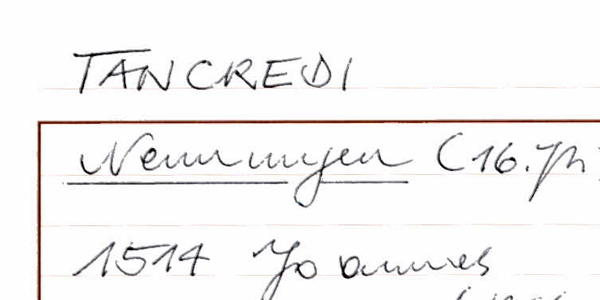 TANCREDI
Nenningen (16. Jh
1514 Joannes